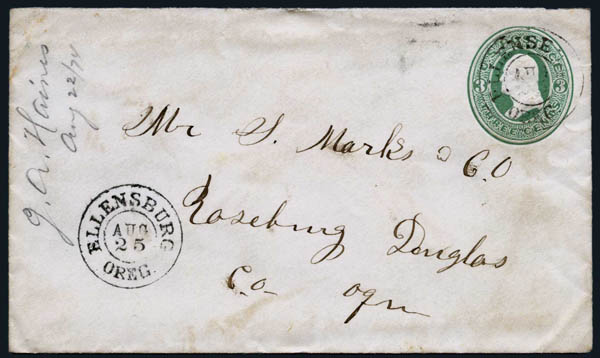 J. A. Haines
Aug 22/74
ELLENSBURG
OREG.
3 3
THREE CENTS
Mr S. Marks & CO
Roseburg Douglas
Co Ogn
ELLENSBURG
AUG
25
OREG.